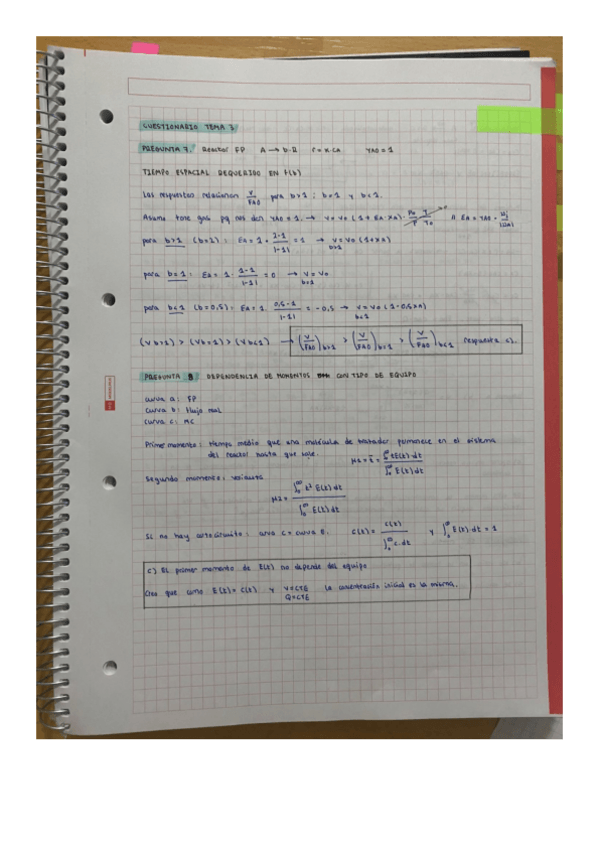 CUESTIONARIO TEMA 3
PREGUNTA 7. Reactor FP A → b·R r = k CA YA0 = 1
TIEMPO ESPACIAL REQUERIDO EN f(b)
Las respuestas relacionan V/FA0 para b>1 ; b=1 y b<1.
Asumo fase gas pq nos dan YA0 = 1. → V = V0 (1 + EA · XA) · P0/P T/T0
para b>1 (b=2) : EA = 1 · 2-1/|-1| = 1 → V = V0 (1+XA) b>1
para b=1 : EA = 1 · 1-1/|-1| = 0 → V = V0 b=1
para b<1 (b=0,5) : EA = 1 · 0,5-1/|-1| = -0,5 → V = V0 (1-0,5XA) b<1
(V b>1) > (V b=1) > (V b<1) → (V/FA0)b>1 > (V/FA0)b=1 > (V/FA0)b<1 respuesta c).
PREGUNTA 8 DEPENDENCIA DE MOMENTOS CON TIPO DE EQUIPO
curva a: FP
curva b: Flujo real
curva c: MC
Primer momento: tiempo medio que una molécula de trazador permanece en el sistema
del reactor hasta que sale. μ1 = t̄ = ∫₀^∞ t E(t) dt / ∫₀^∞ E(t) dt
Segundo momento: varianza
μ2 = ∫₀^∞ t² E(t) dt / ∫₀^∞ E(t) dt
Si no hay cortocircuito: curva C = curva E. E(t) = C(t) / ∫₀^∞ C·dt y ∫₀^∞ E(t) dt = 1
c) El primer momento de E(t) no depende del equipo
Creo que como E(t) = C(t) y V=CTE Q=CTE la concentración inicial es la misma.